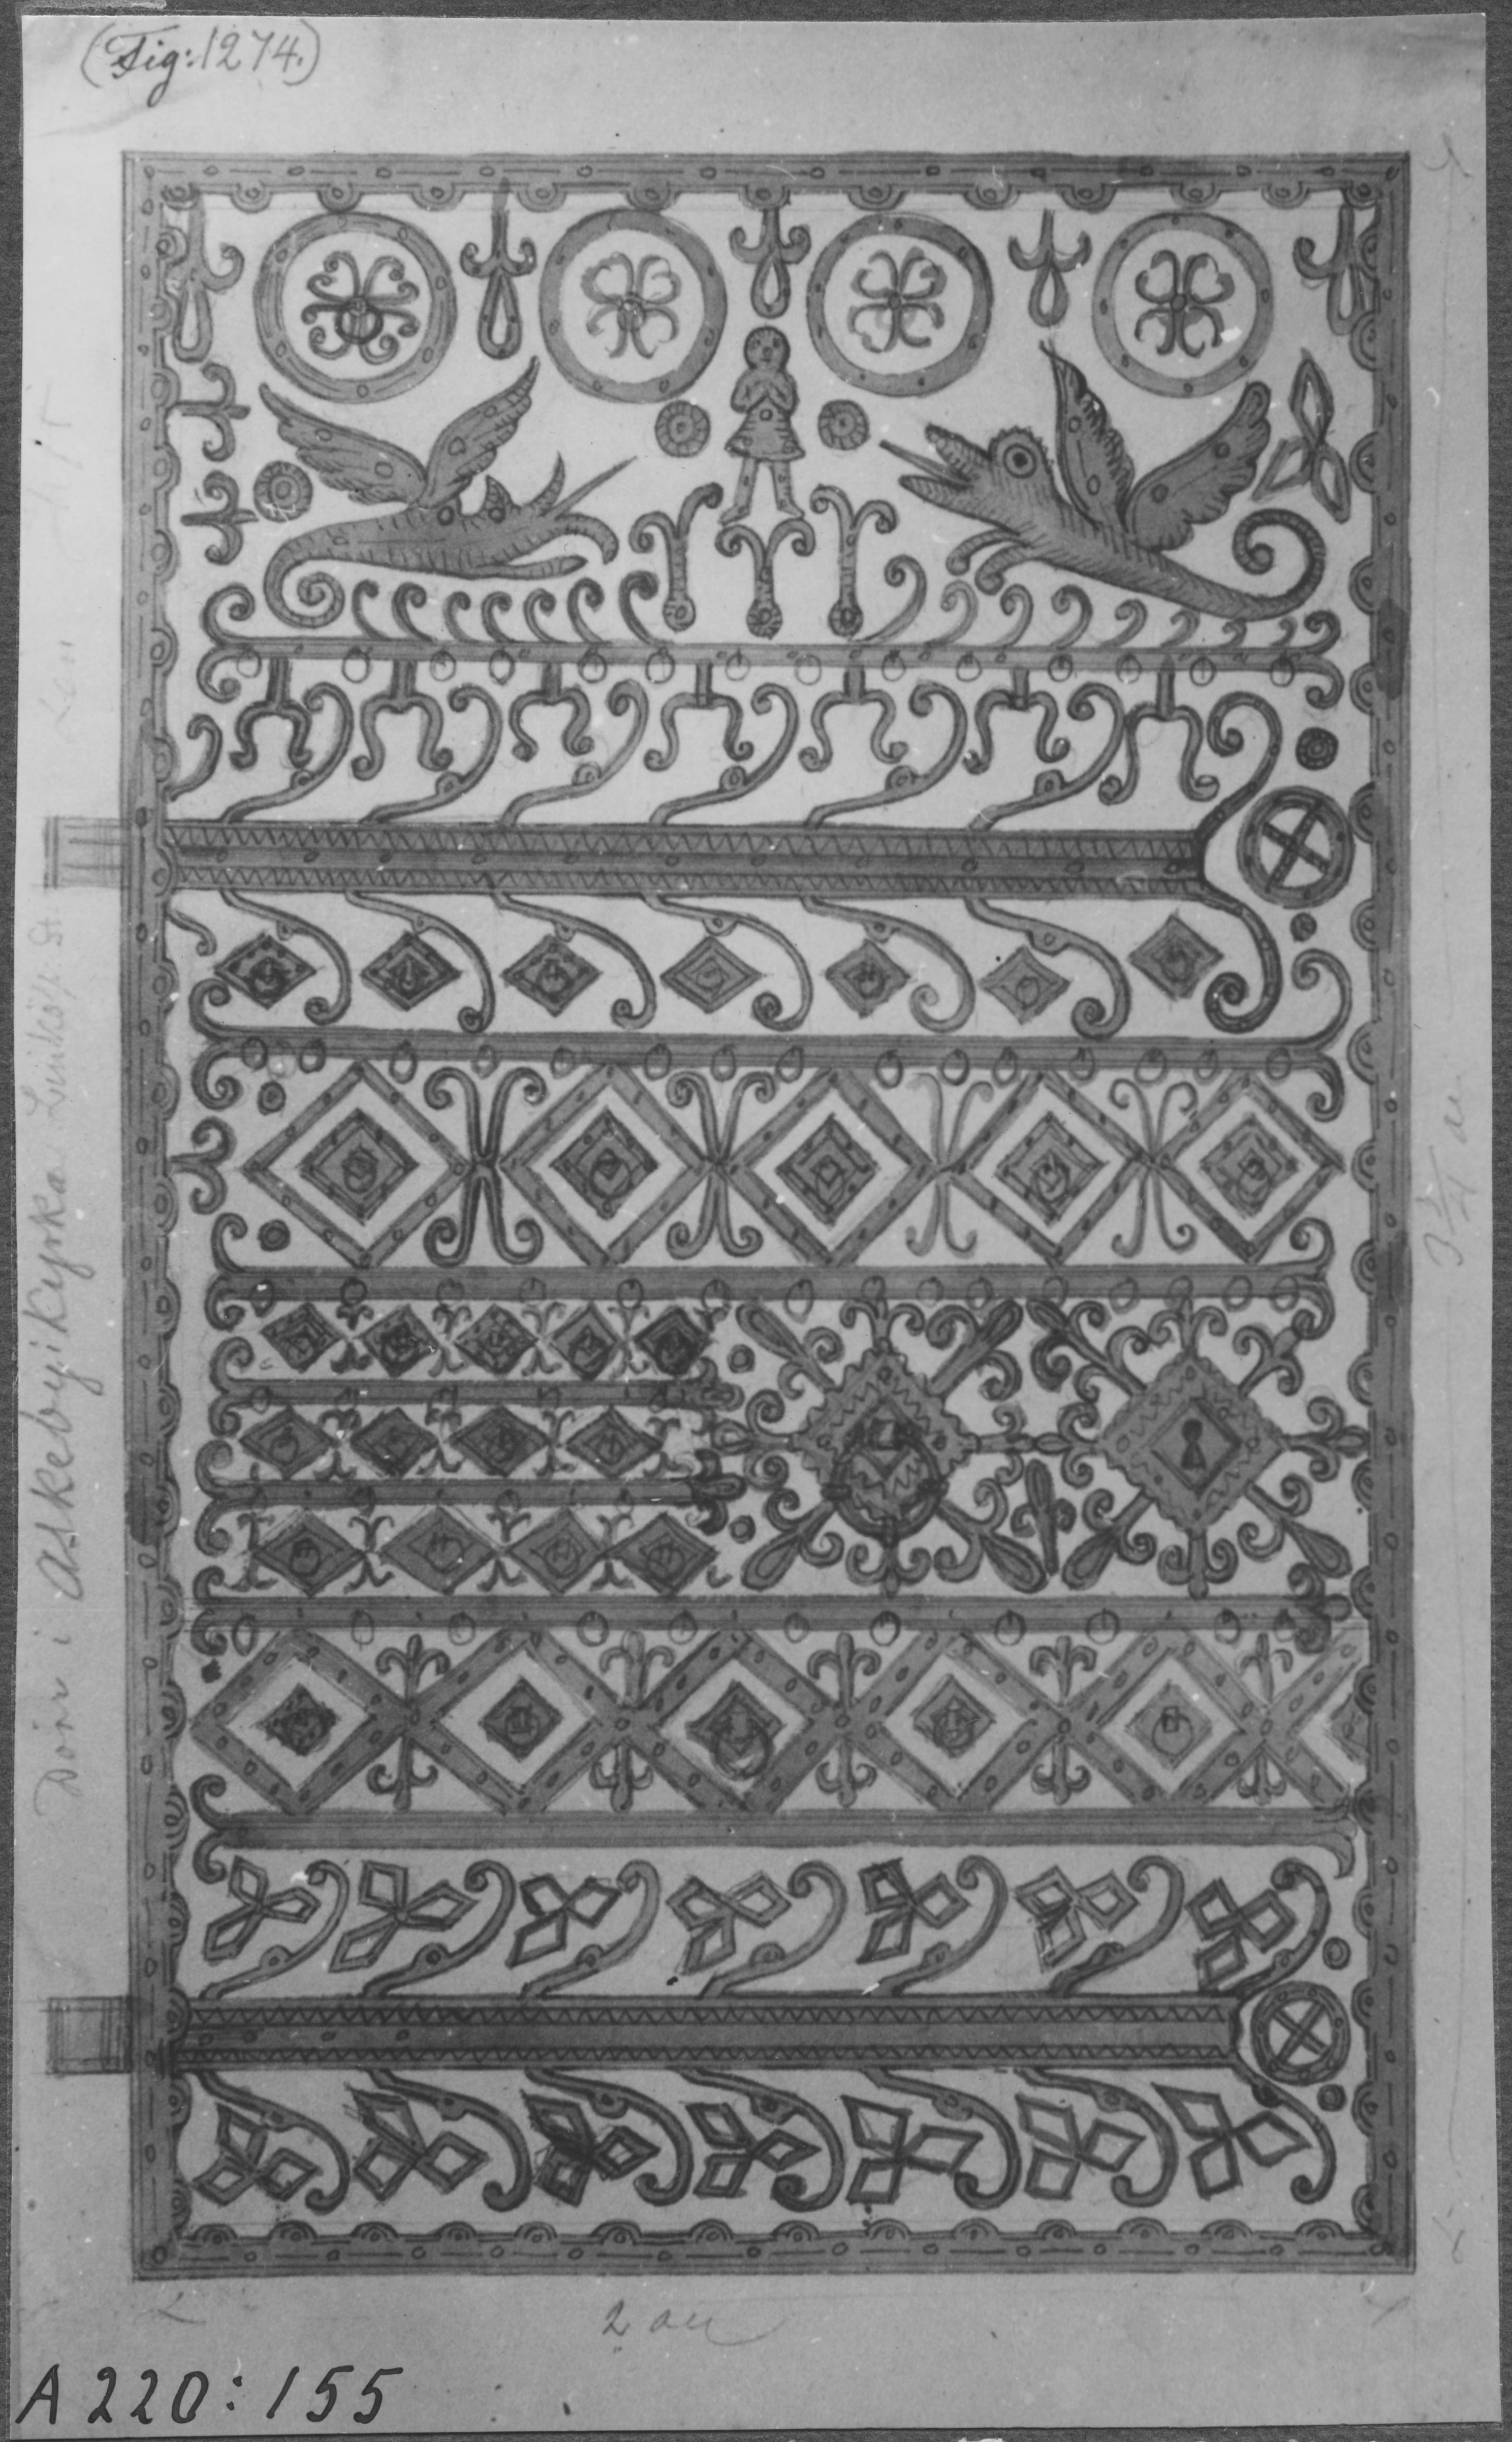 (Fig: 1274.)
Dörr i Askeby Kyrka Linköp. St.
3 3/4 al
2 aln
A 220: 155